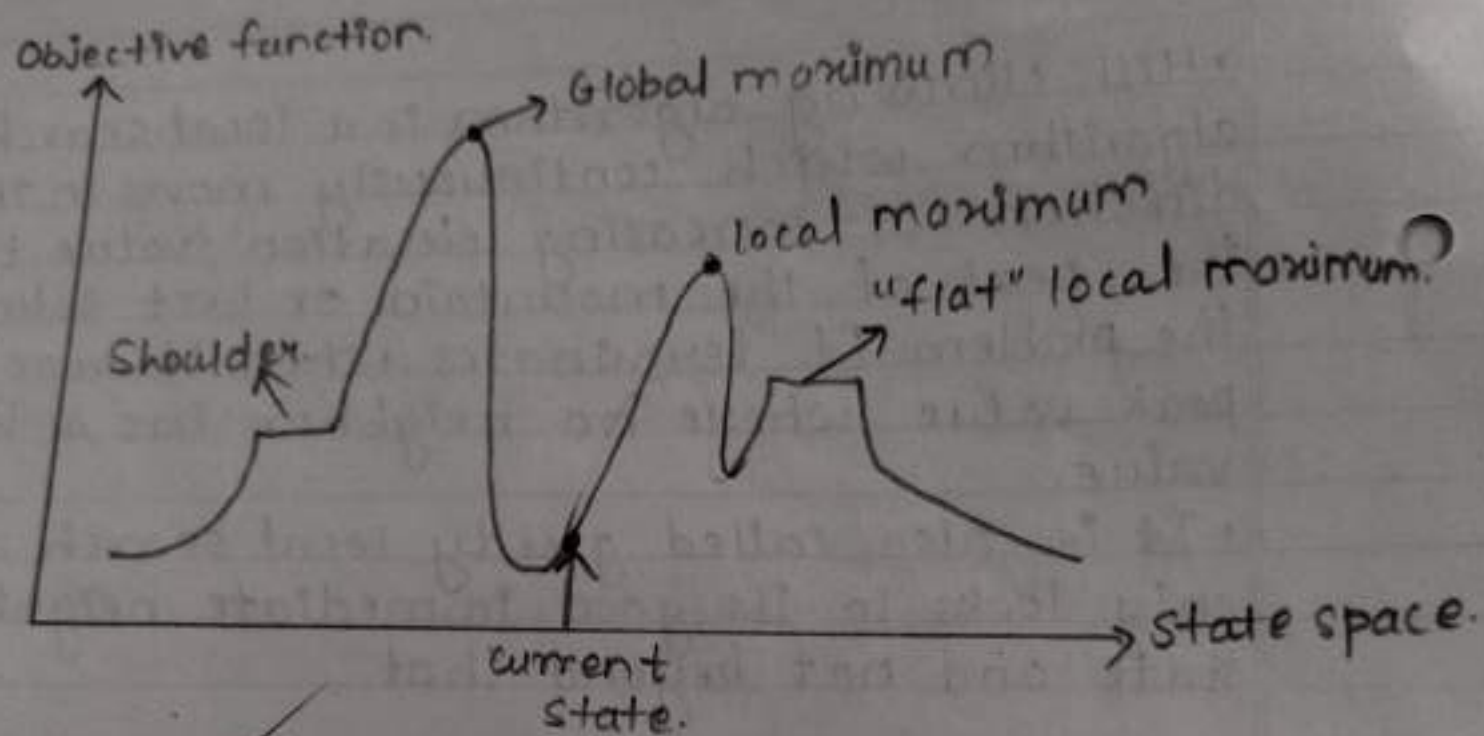 Objective function.
Global maximum
local maximum
"flat" local maximum.
Shoulder
State space.
current
state.